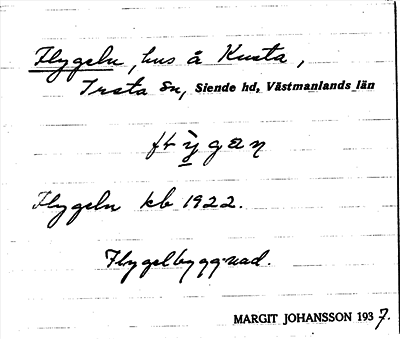 Flygeln, hus å Kusta,
Irsta sn, Siende hd, Västmanlands län
Flygeln kb 1922.
Flygelbyggnad.
MARGIT JOHANSSON 1937.